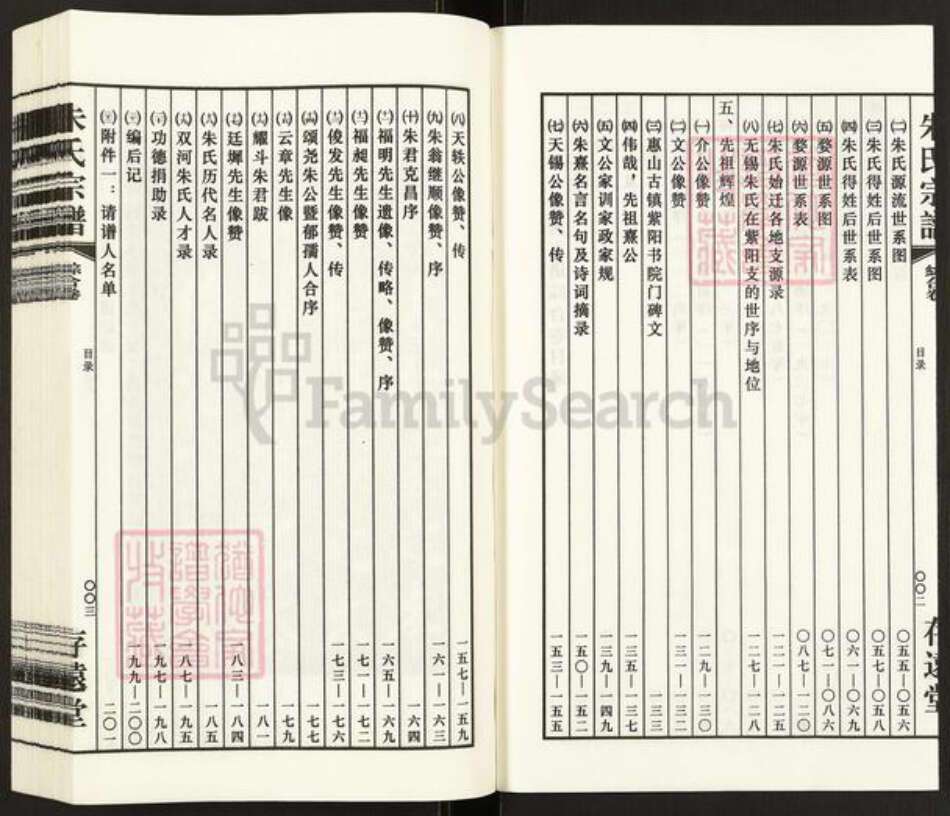 朱氏宗谱
目录
〇〇二
存远堂
㈡朱氏源流世系图 〇五五—〇五六
㈢朱氏得姓后世系图 〇五七—〇五八
㈣朱氏得姓后世系表 〇六一—〇六九
㈤婺源世系图 〇七一—〇八六
㈥婺源世系表 〇八七—一二〇
㈦朱氏始迁各地支源录 一二一—一二五
㈧无锡朱氏在紫阳支的世序与地位 一二七—一二八
五、先祖辉煌
㈠介公像赞 一二九—一三〇
㈡文公像赞 一三一—一三二
㈢惠山古镇紫阳书院门碑文 一三三
㈣伟哉，先祖熹公 一三五—一三七
㈤文公家训家政家规 一三九—一四九
㈥朱熹名言名句及诗词摘录 一五〇—一五二
㈦天锡公像赞、传 一五三—一五五
㈧天轶公像赞、传 一五七—一五九
㈨朱翁继顺像赞、序 一六一—一六三
㈩朱君克昌序 一六四
福明先生遗像、传略、像赞、序 一六五—一六九
福昶先生像赞 一七一—一七二
俊发先生像赞、传 一七三—一七六
颂尧朱公暨郁孺人合序 一七七
云章先生像 一七九
耀斗朱君跋 一八一
廷墀先生像赞 一八三—一八四
朱氏历代名人录 一八五
双河朱氏人才录 一八七—一九五
功德捐助录 一九七—一九八
编后记 一九九—二〇〇
附件一：请谱人名单 二〇一
朱氏宗谱
目录
〇〇三
存远堂
FamilySearch